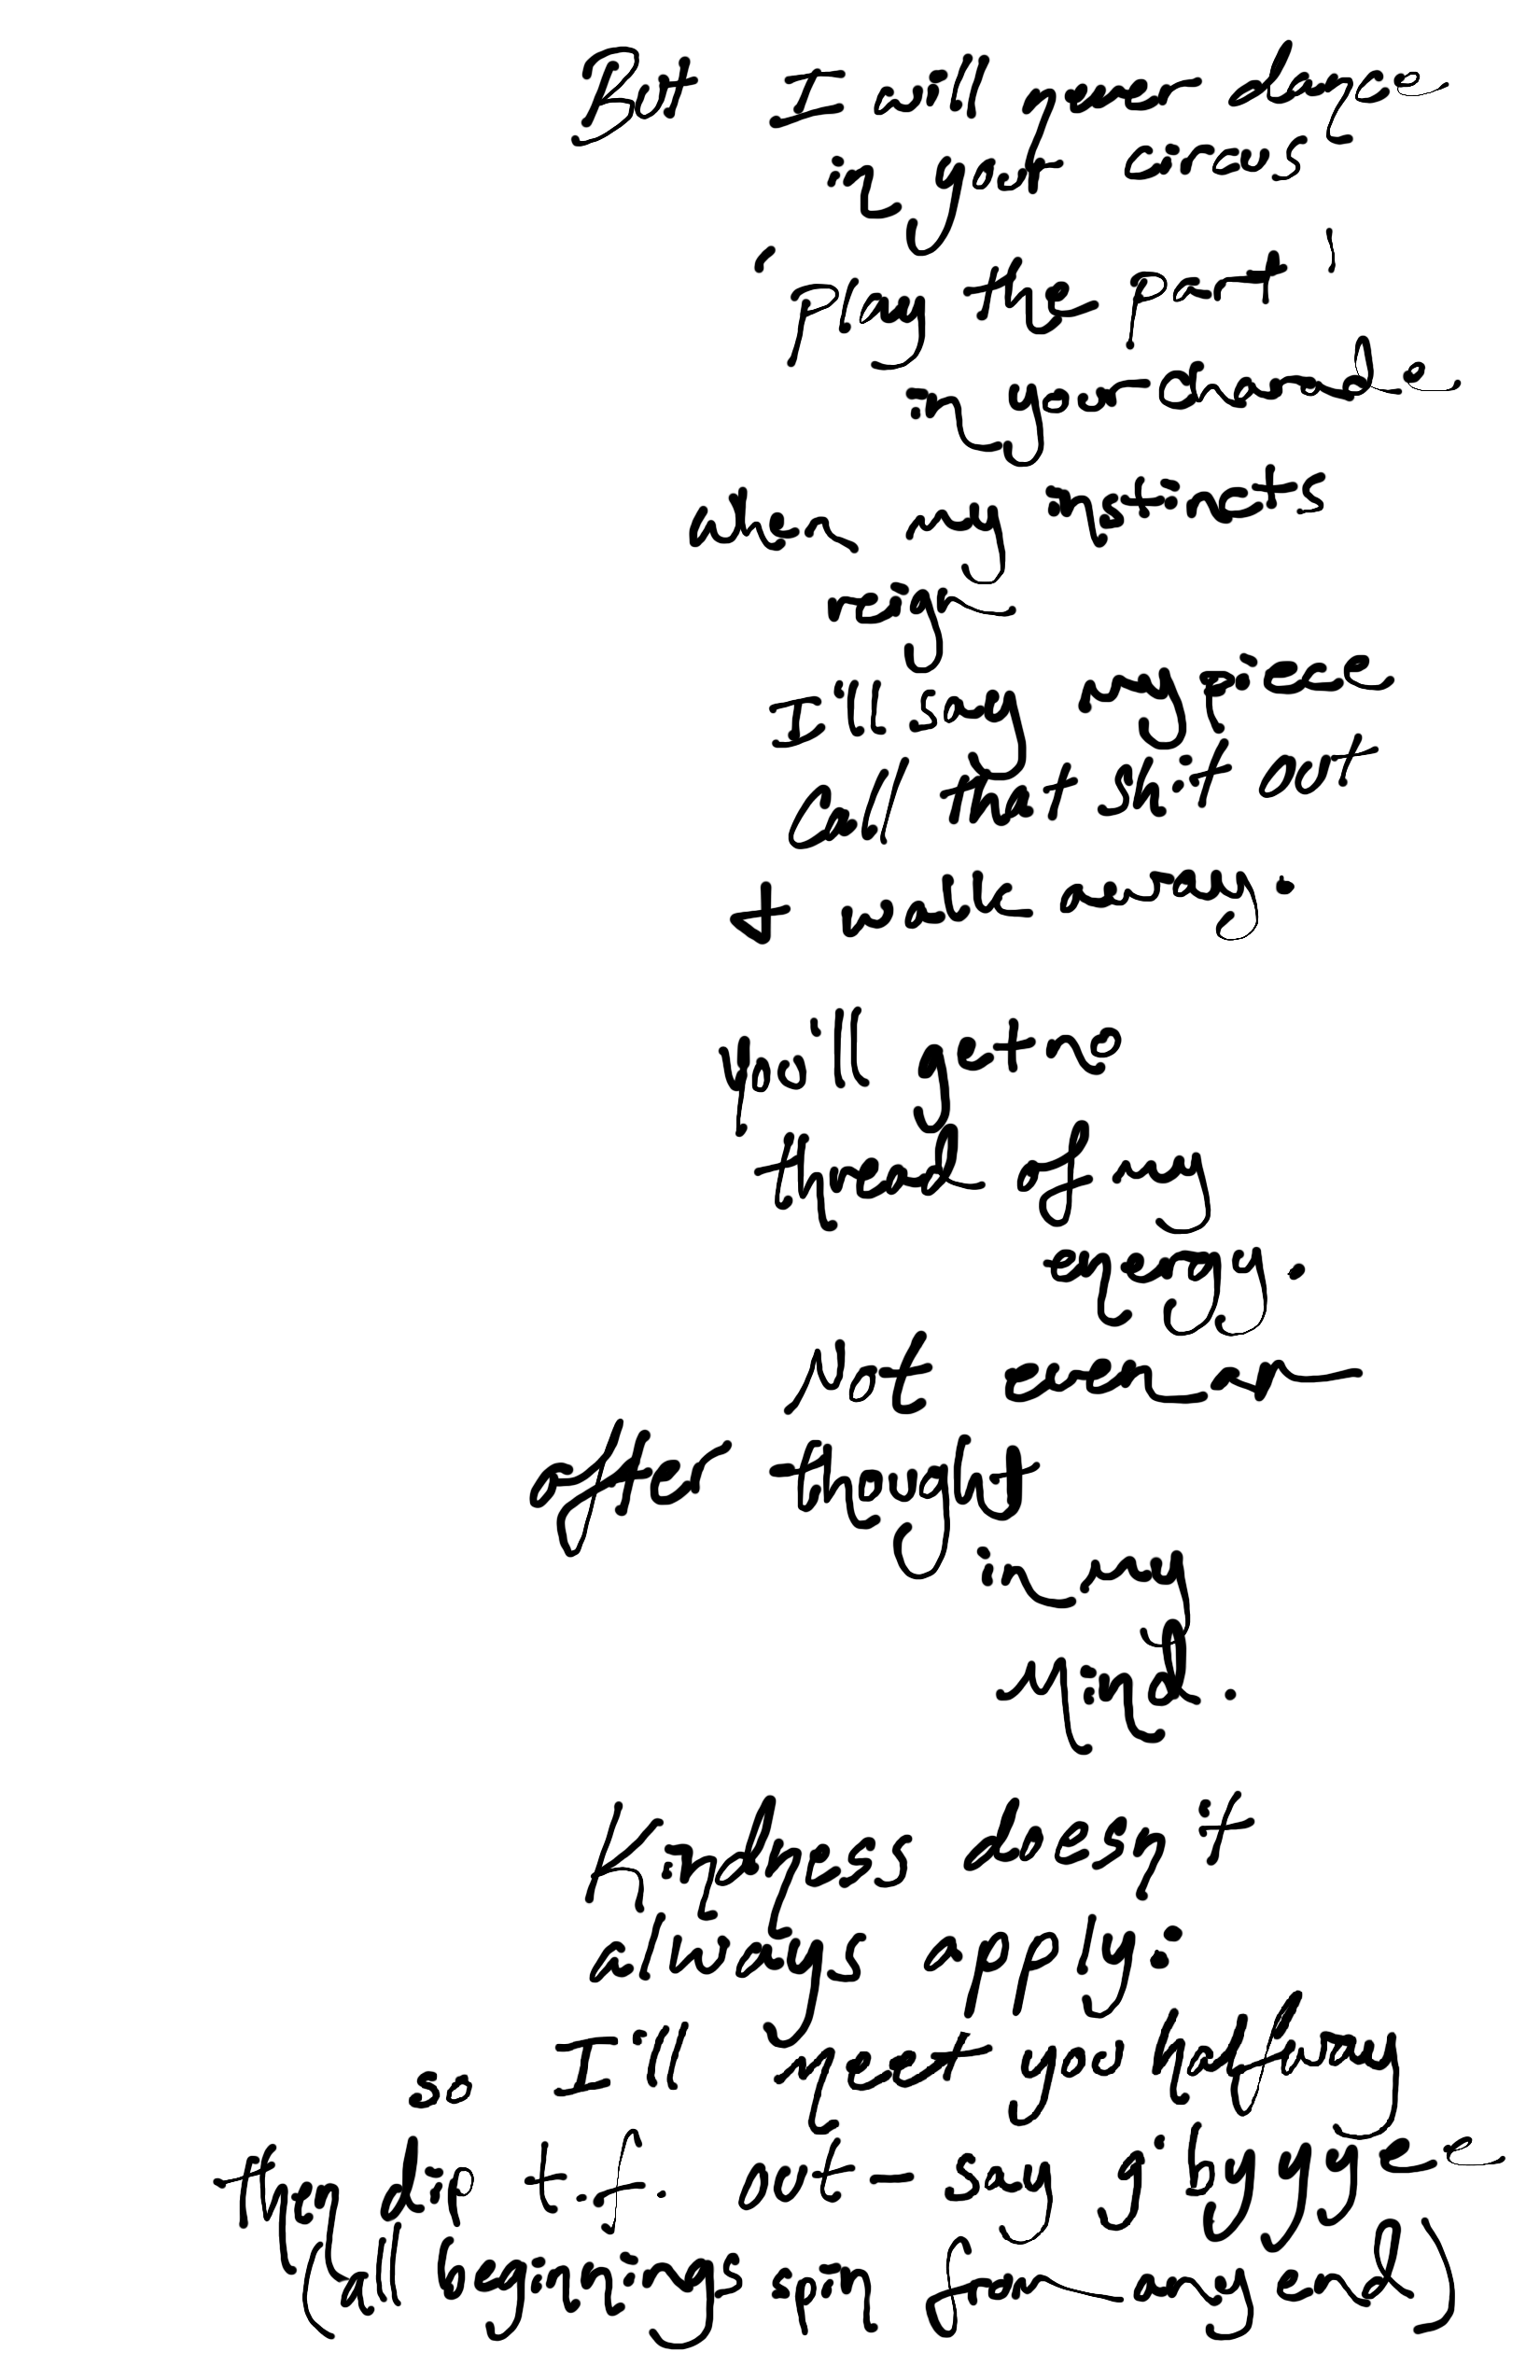 But I will never dance
in your circus
'Play the part'
in your charade
when my instincts
reign
I'll say my piece
Call that shit out
& walk away.
You'll get no
thread of my
energy.
Not even an
after thought
in my
Mind.
Kindness doesn't
always apply:
so I'll meet you halfway
then dip t.f. out - say g'byyyee
(all beginnings spin from any end)